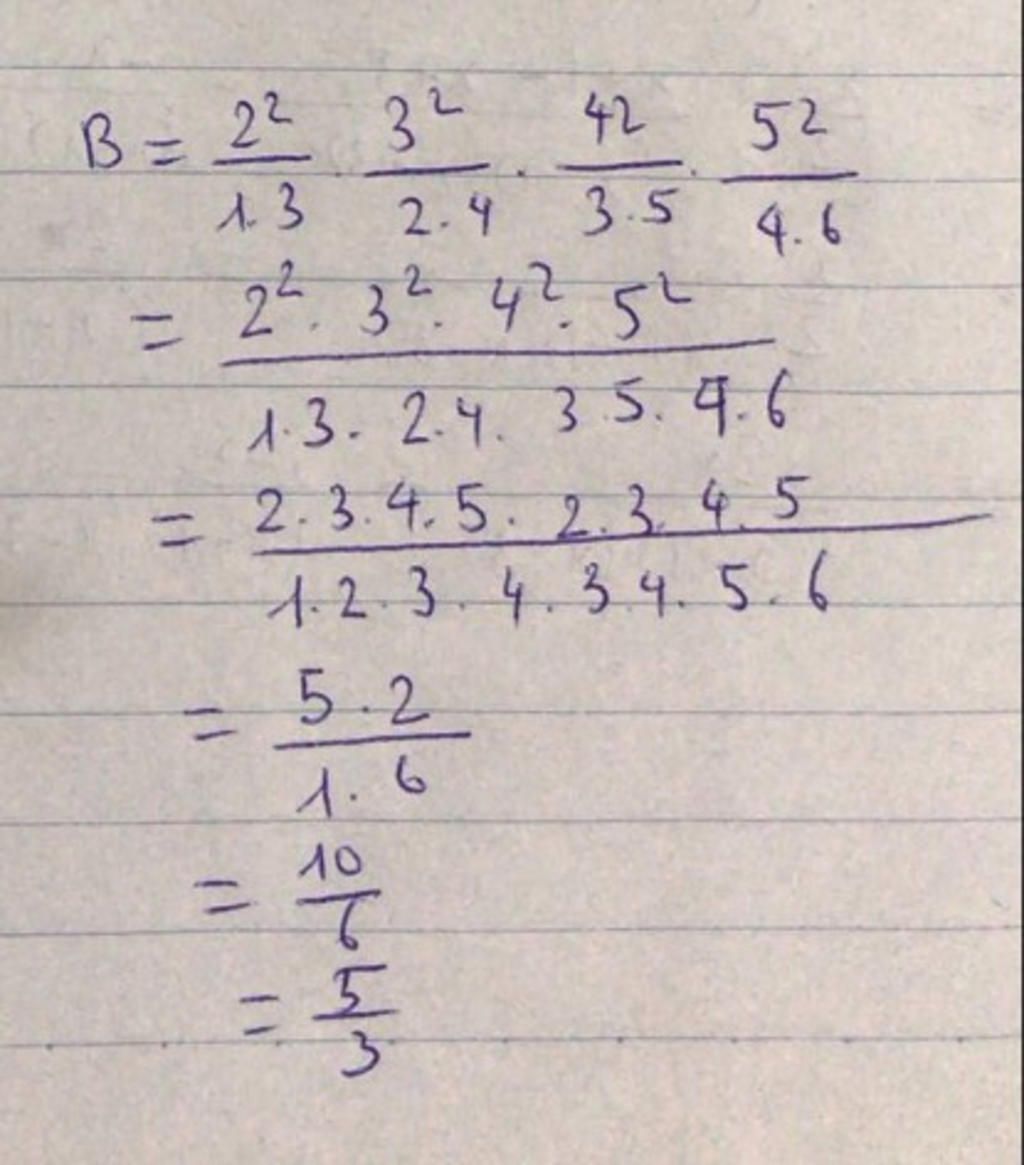 B = 2²/1.3 . 3²/2.4 . 4²/3.5 . 5²/4.6
= 2² . 3² . 4² . 5² / 1.3. 2.4. 3 5. 4.6
= 2.3.4.5. 2.3. 4. 5 / 1.2.3.4.3.4.5.6
= 5.2 / 1.6
= 10/6
= 5/3